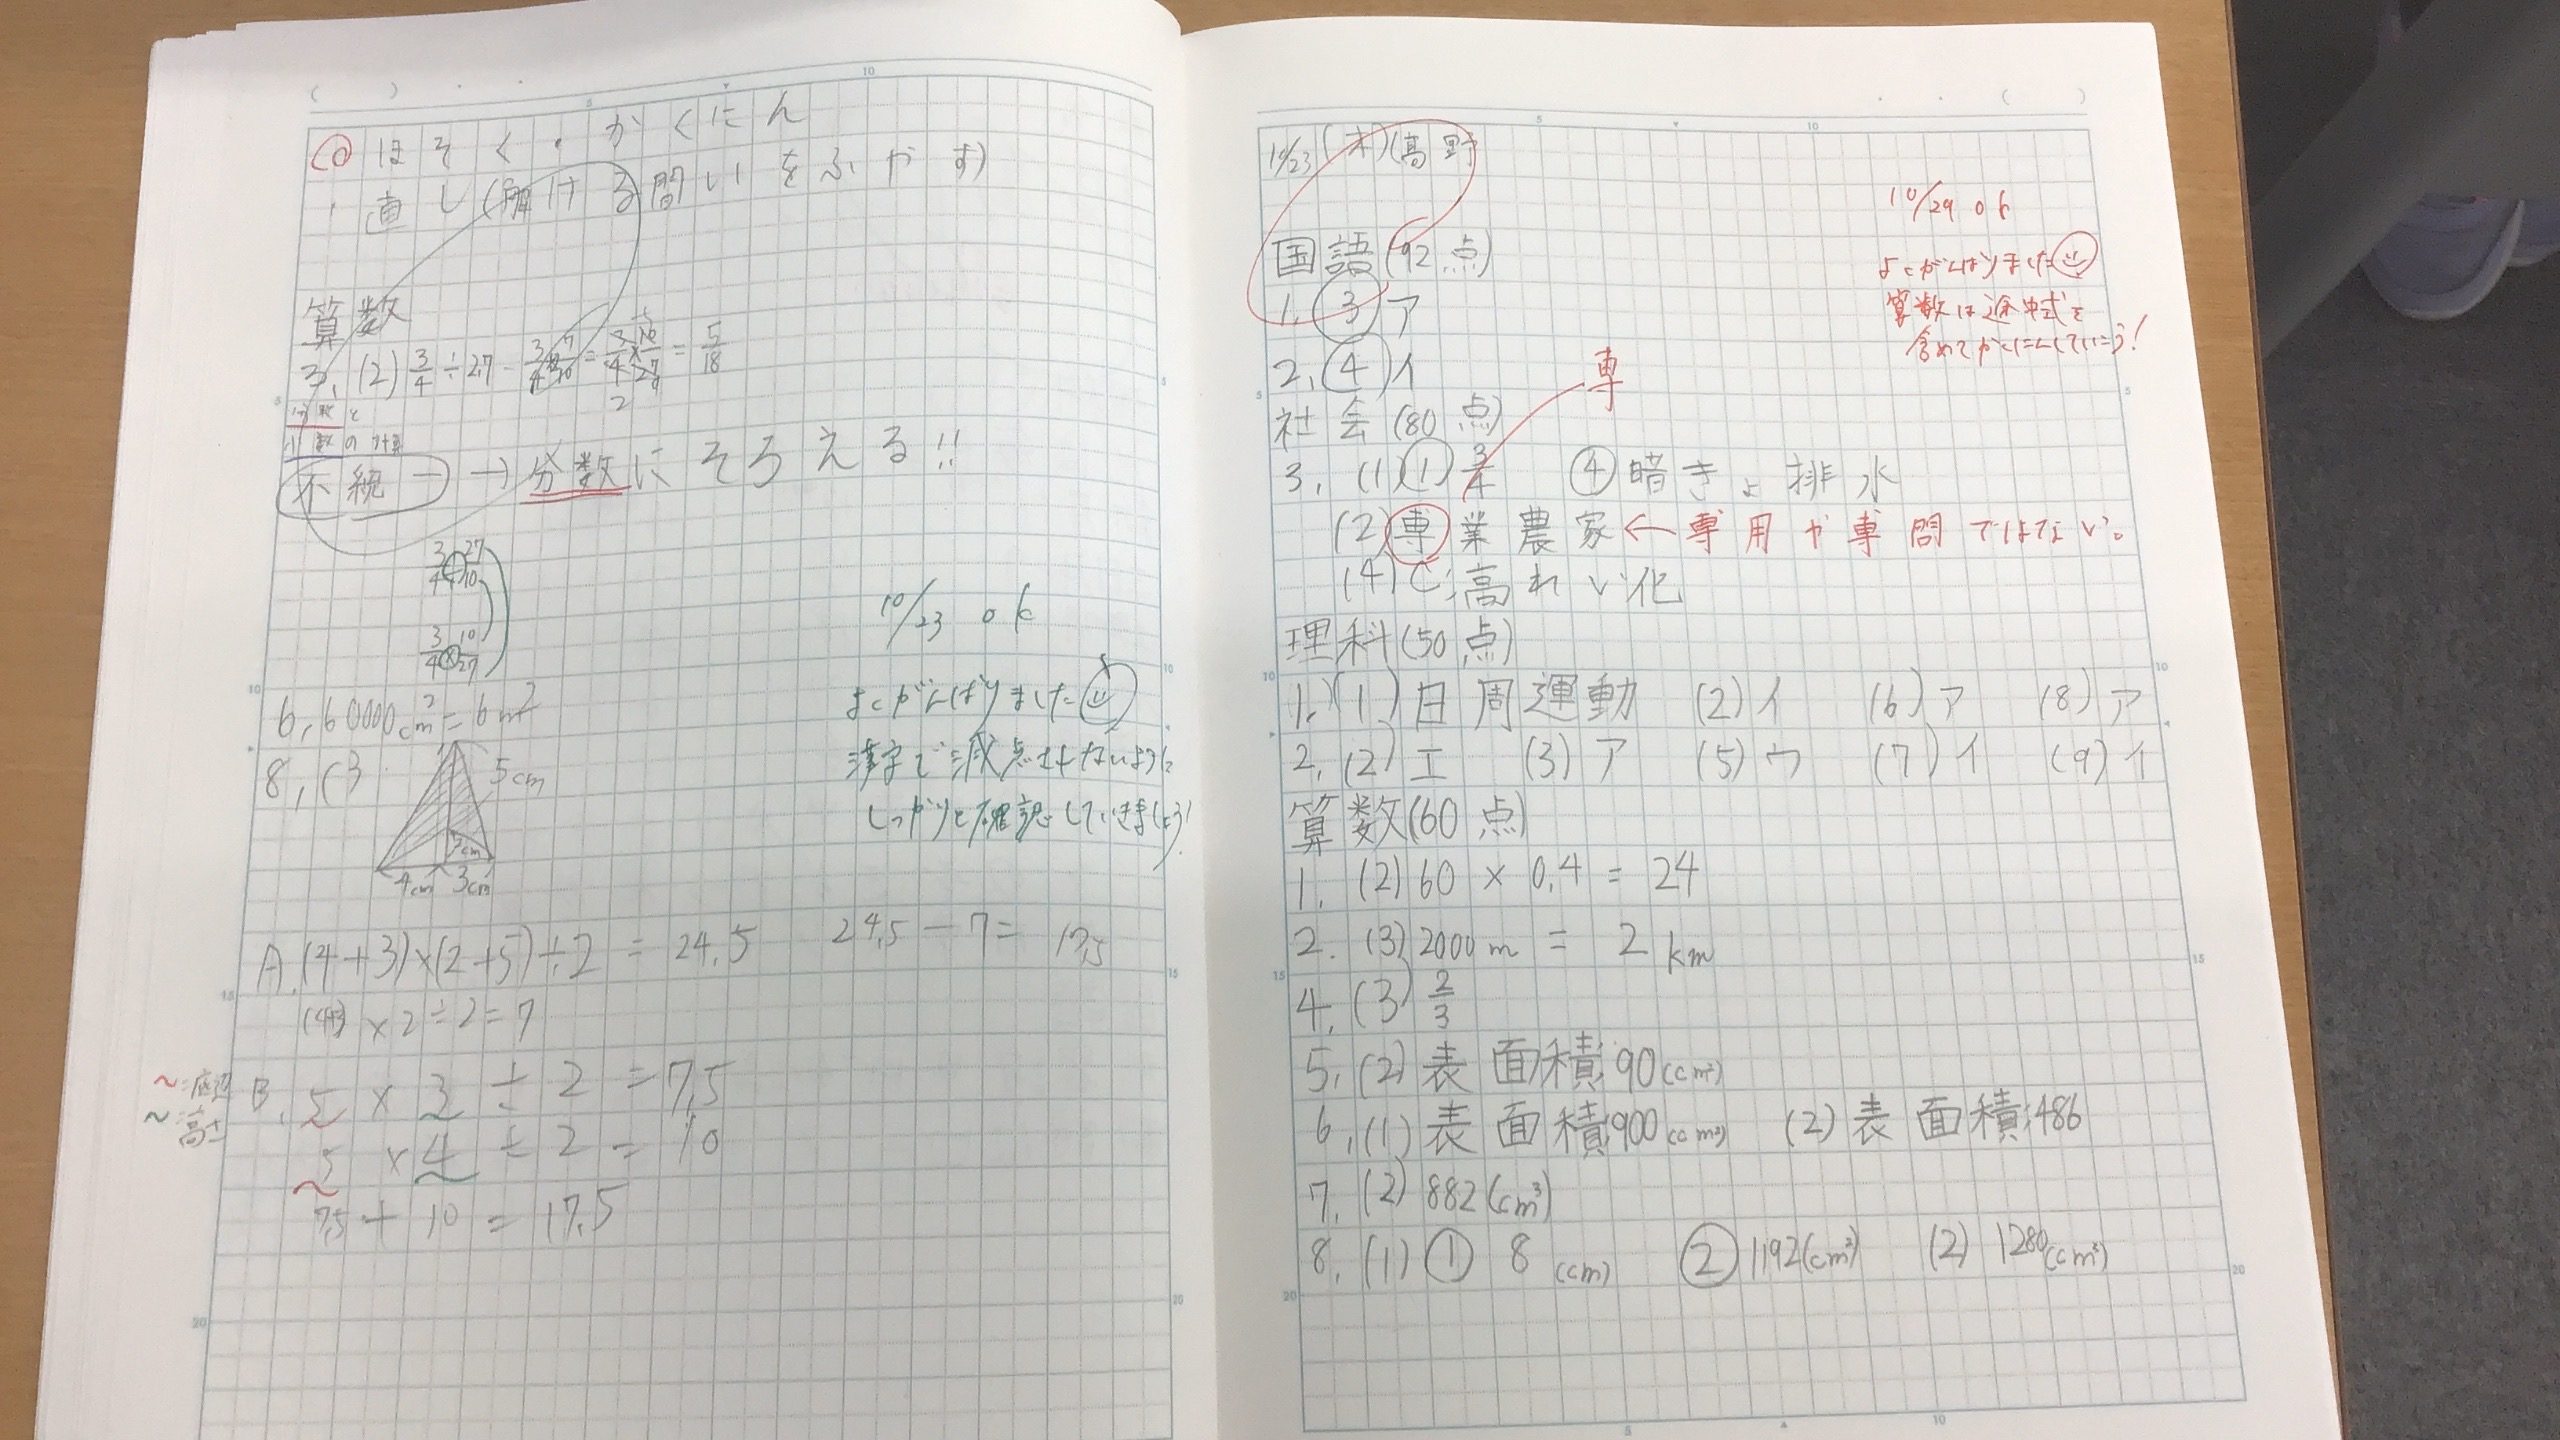 ほそく・かくにん
・直し(解ける問いをふやす)
算数
3,(2) 3/4÷2.7=3/4÷27/10=3/4×10/27=5/18
分数と
小数の計算
不統一→分数にそろえる!!
3/4÷27/10
3/4×10/27
10/23 ok
よくがんばりました
漢字で減点されないように
しっかりと確認していきましょう!
6,60000cm²=6m²
8,(3
5cm
2cm
4cm 3cm
A.(4+3)×(2+5)÷2=24.5 24.5-7=17.5
(4+3)×2÷2=7
〜:底辺
〜:高さ
B.5×3÷2=7.5
5×4÷2=10
7.5+10=17.5
10/23(木)(高野
10/29 ok
よくがんばりました
算数は途中式を
含めてかくにんしていこう!
国語(92点)
1,③ア
2,④イ
専
社会(80点)
3,(1)①3/4 ④暗きょ排水
(2)専業農家←専用や専問ではない。
(4)C:高れい化
理科(50点)
1,(1)日周運動 (2)イ (6)ア (8)ア
2,(2)エ (3)ア (5)ウ (7)イ (9)イ
算数(60点)
1,(2)60×0.4=24
2.(3)2000m=2km
4,(3)2/3
5,(2)表面積:90(cm²)
6,(1)表面積:900(cm²) (2)表面積:486
7,(2)882(cm³)
8,(1)①8(cm) ②1192(cm²) (2)1280(cm³)